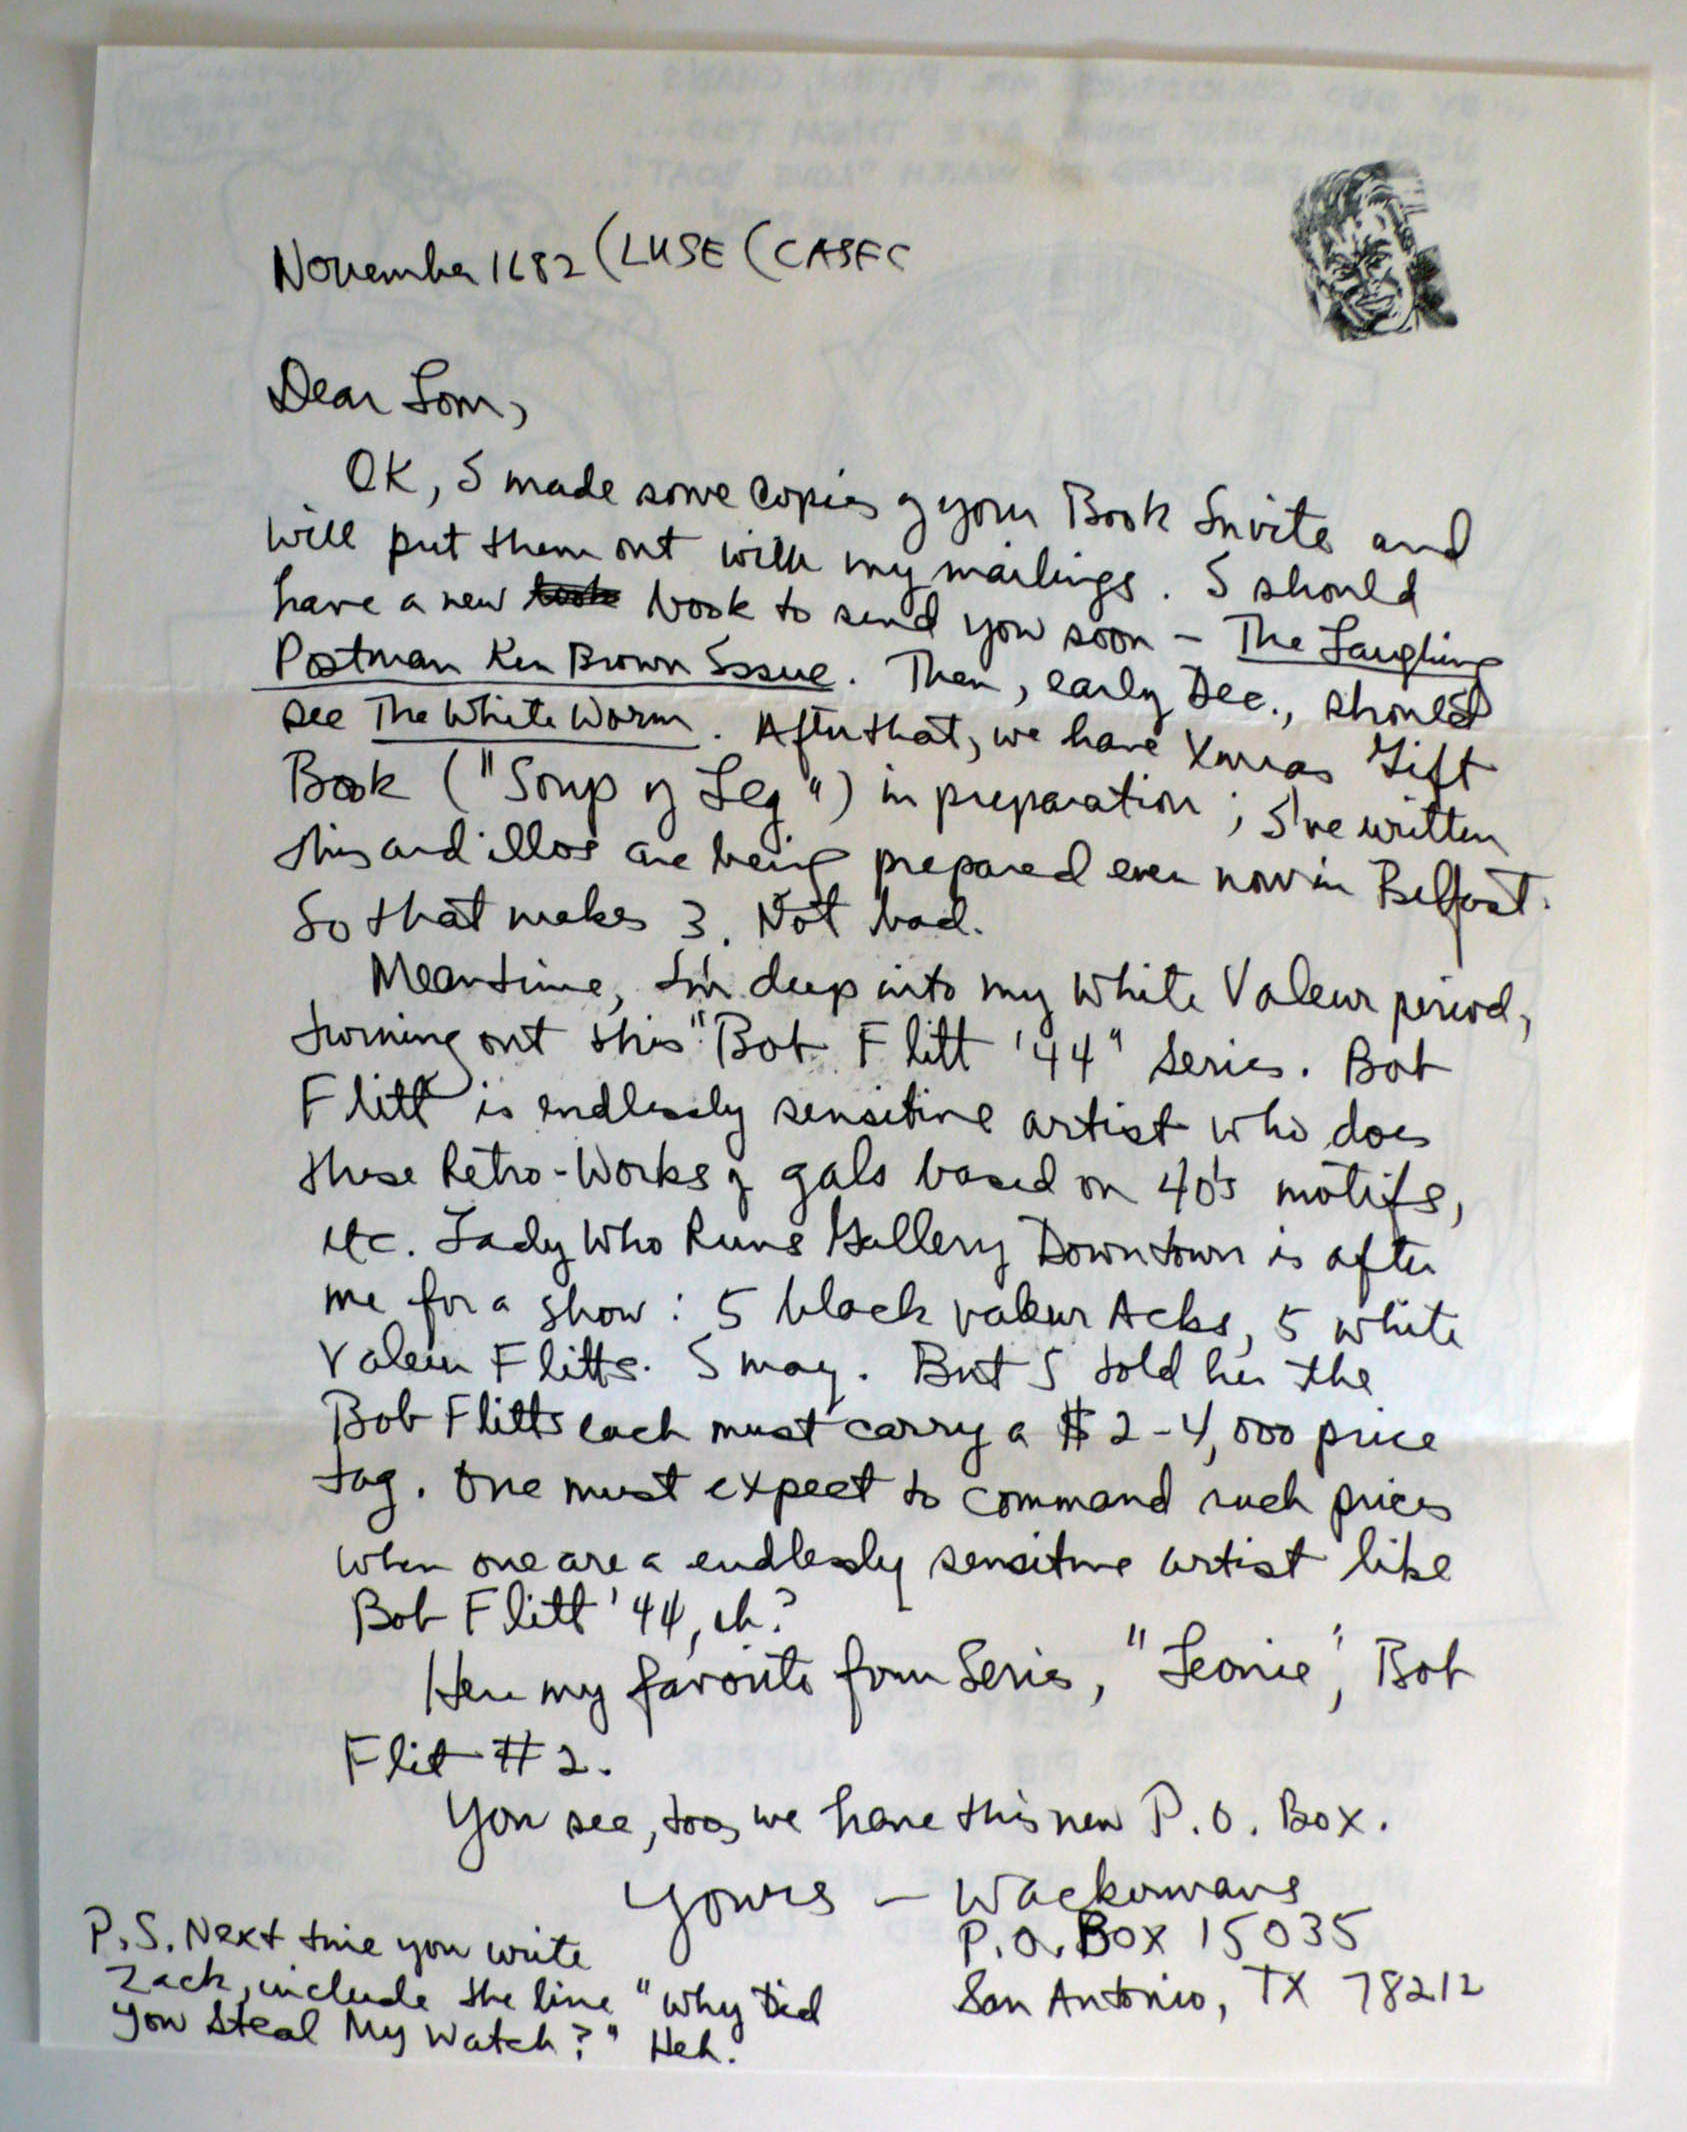 November 1682 (LUSE (CASEC
Dear Tom,
OK, I made some copies of your Book Invite and
will put them out with my mailings. I should
have a new book to send you soon - The Laughing
Postman Ken Brown Issue. Then, early Dec., should
see The White Worm. After that, we have Xmas Gift
Book ("Soup of Leg") in preparation; I've written
this and illos are being prepared even now in Belfast.
So that makes 3. Not bad.
Meantime, I'm deep into my White Valeur period,
turning out this "Bob Flitt '44" series. Bob
Flitt is endlessly sensitive artist who does
these Retro-Works of gals based on 40's motifs,
etc. Lady Who Runs Gallery Downtown is after
me for a show: 5 black valeur Acks, 5 white
Valeur Flitts. I may. But I told her the
Bob Flitts each must carry a $2-4,000 price
tag. One must expect to command such prices
when one are a endlessly sensitive artist like
Bob Flitt '44, eh?
Here my favorite from Series, "Leonie", Bob
Flit #2.
You see, too, we have this new P.O. Box.
Yours - Wackermans
P.O. Box 15035
San Antonio, TX 78212
P.S. Next time you write
Zack, include the line "Why Did
You Steal My Watch?" Heh.